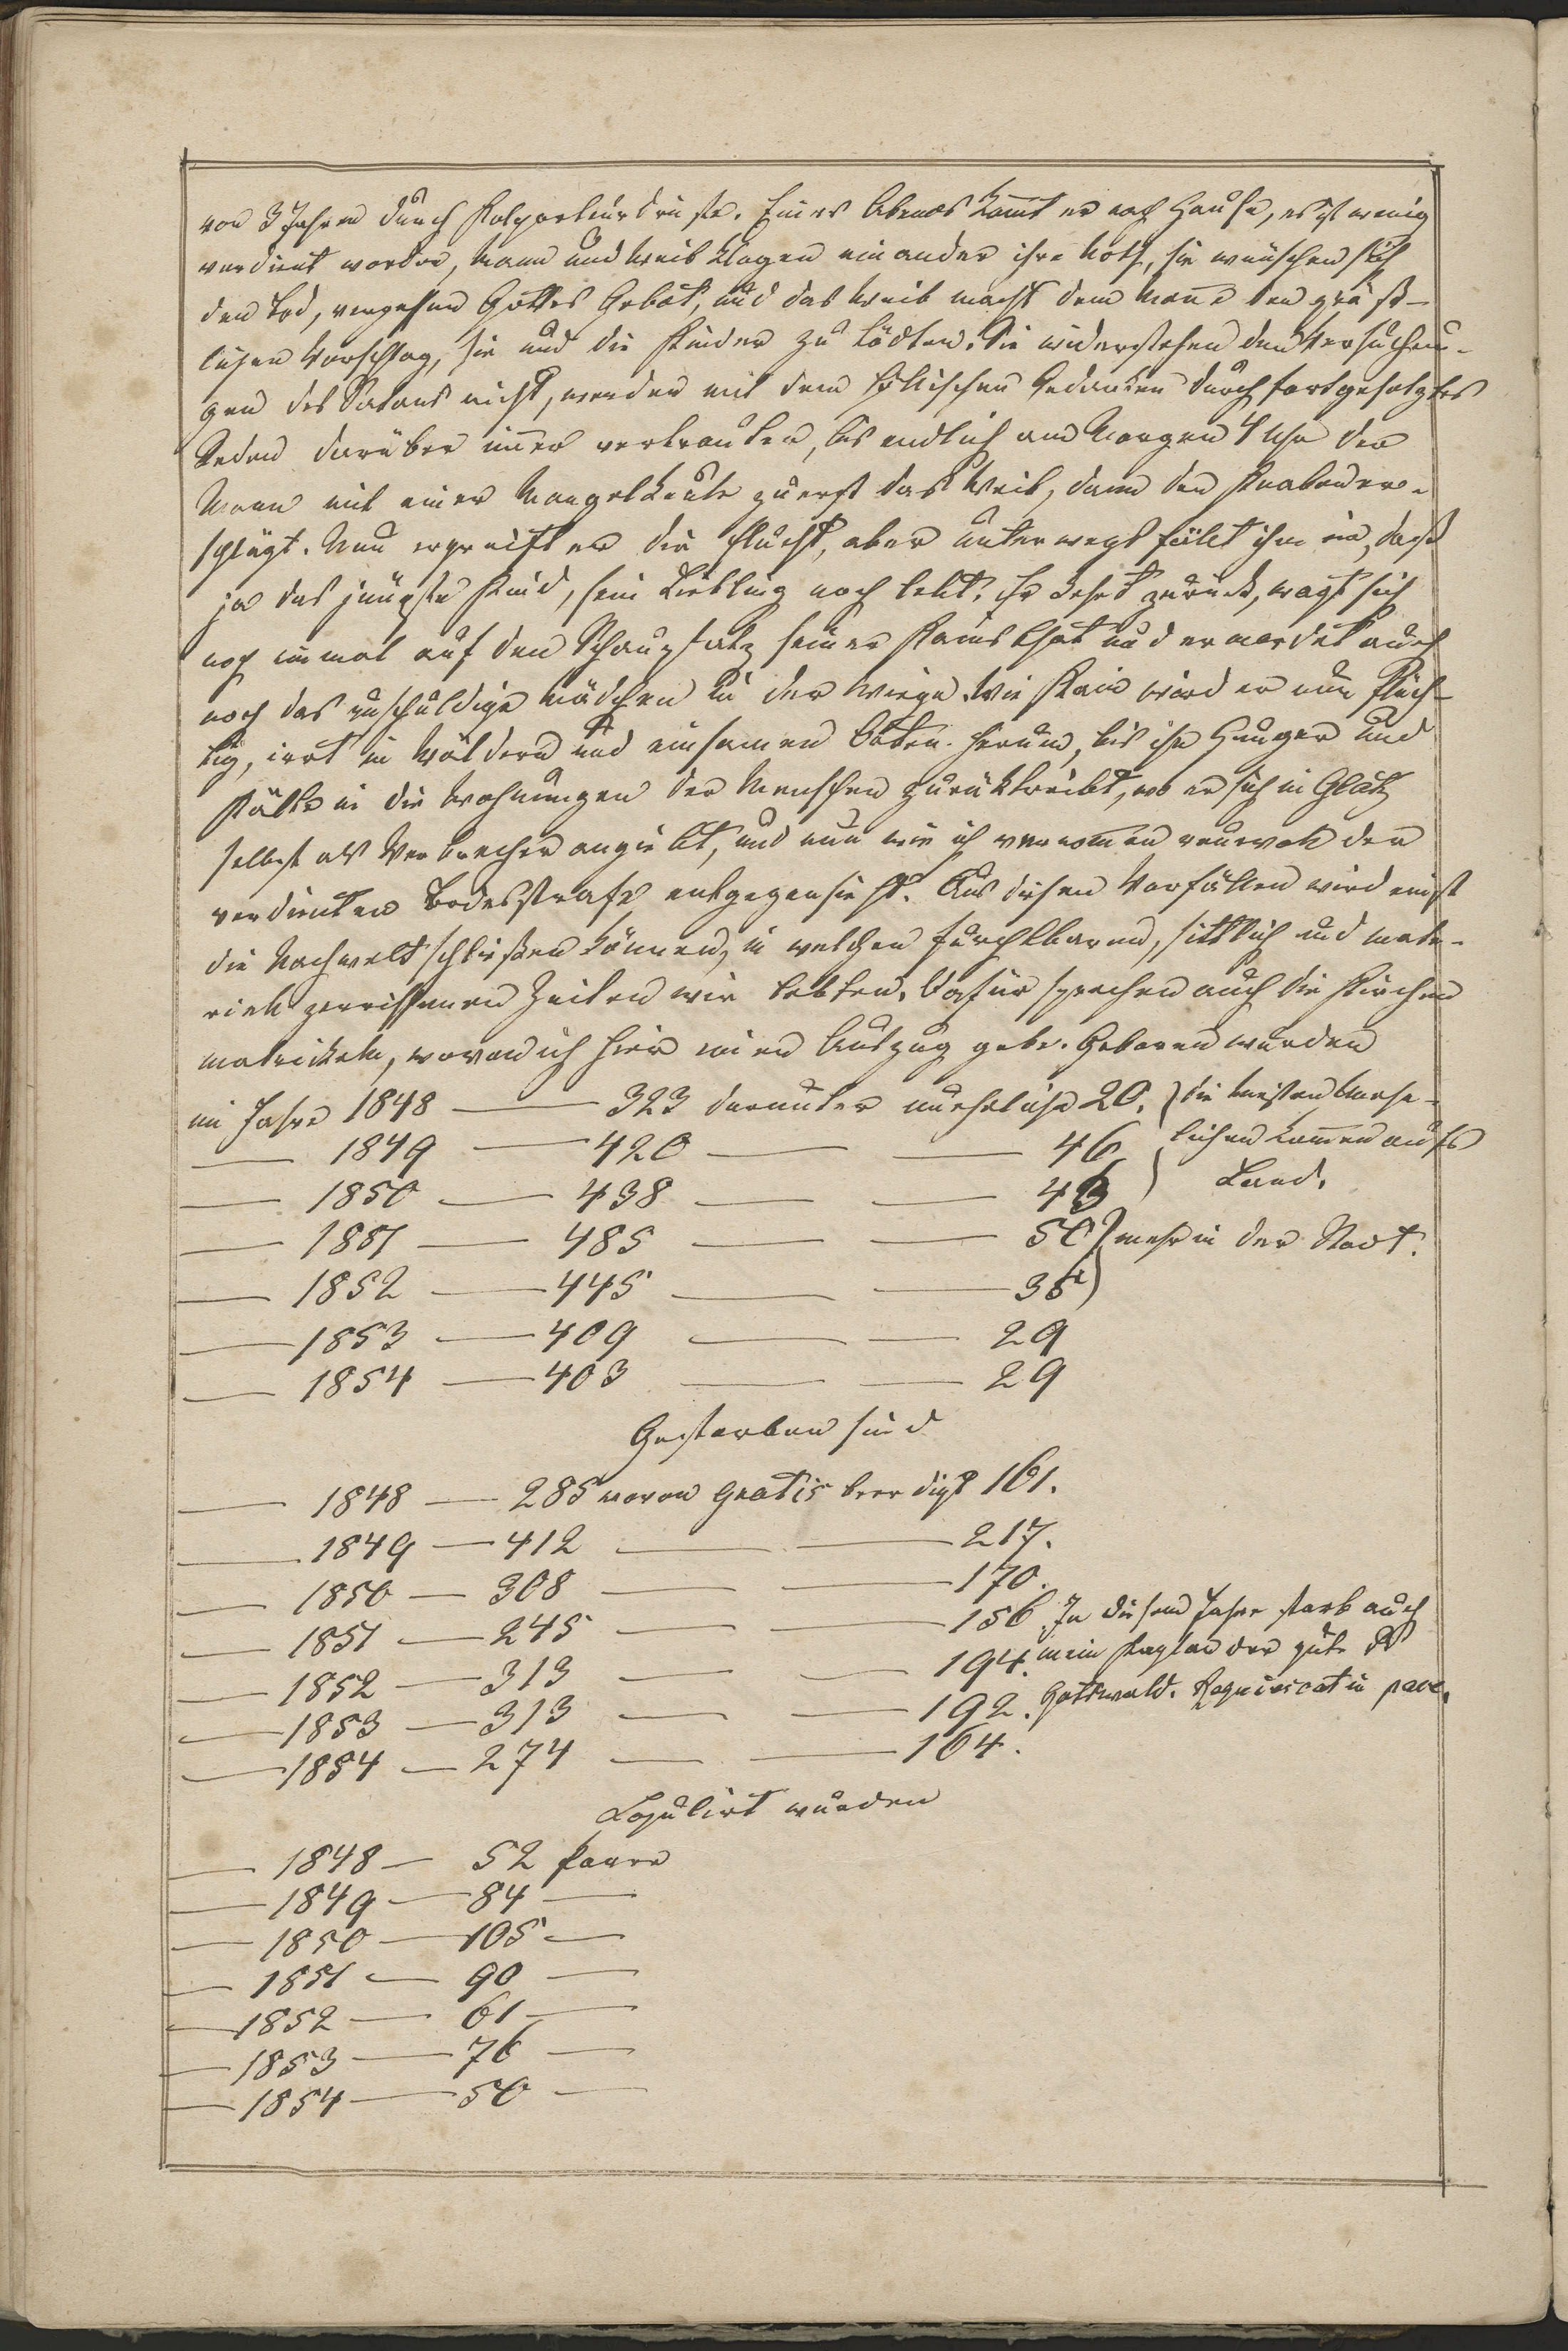 von 3 Jahren durch Kolporteurdienste. Eines Abends kommt er nach Hause, es ist wenig
verdient worden, Mann und Weib klagen einander ihre Noth, sie wünschen sich
den Tod, vergessen Gottes Gebot, und das Weib macht dem Manne den gräß-
lichen Vorschlag, sie und die Kinder zu tödten. Sie widerstehen den Versuchun-
gen des Satans nicht, werden mit dem höllischen Gedanken durch fortgesetztes
Reden darüber immer vertrauter, bis endlich am Morgen 4 Uhr der
Mann mit einer Mangelkeule zuerst das Weib, dann den Knaben er-
schlägt. Nun ergreift er die Flucht, aber unterwegs fällt ihm ein, daß
ja das jüngste Kind, sein Liebling noch lebt. Er kehrt zurück, wagt sich
noch einmal auf den Schauplatz seiner Kainsthat und ermordet auch
noch das unschuldige Mädchen in der Wiege. Wie Kain wird er nun flüch-
tig, irrt in Wäldern und einsamen Orten herum, bis ihn Hunger und
Kälte in die Wohnungen der Menschen zurücktreibt, wo er sich in Glatz
selbst als Verbrecher angiebt, und nun wie ich vernommen reuevoll der
verdienten Todesstrafe entgegensieht. Aus diesen Vorfällen wird einst
die Nachwelt schließen können, in welchen furchtbaren, sittlich und mate-
riell zerrissenen Zeiten wir lebten. Dafür sprechen auch die Kirchen
matrickeln, wovon ich hier einen Auszug gebe. Geboren wurden
im Jahre 1848 — 323 darunter unehrliche 20. ) die meisten Unehe-
— 1849 — 420 — — 46 lichen kommen aufs
— 1850 — 438 — — 43 ) Land.
— 1851 — 485 — — 50 ) mehr in der Stadt.
— 1852 — 445 — — 36 )
— 1853 — 409 — — 29
— 1854 — 403 — — 29
Gestorben sind
— 1848 — 285 wovon gratis beerdigt 161.
— 1849 — 412 — — 217.
— 1850 — 308 — — 170.
— 1851 — 245 — — 156. In diesem Jahre starb auch
— 1852 — 313 — — 194. mein Kaplan der gute
— 1853 — 313 — — 192. Gottwald. Requiescat in pace.
— 1854 — 274 — — 164.
Copulirt wurden
— 1848 — 52 Paare
— 1849 — 84 —
— 1850 — 105 —
— 1851 — 90 —
— 1852 — 61 —
— 1853 — 76 —
— 1854 — 50 —